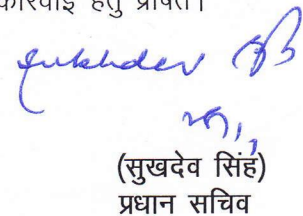 कारवाई हेतु प्रेषित।
Sukhdev
(सुखदेव सिंह)
प्रधान सचिव